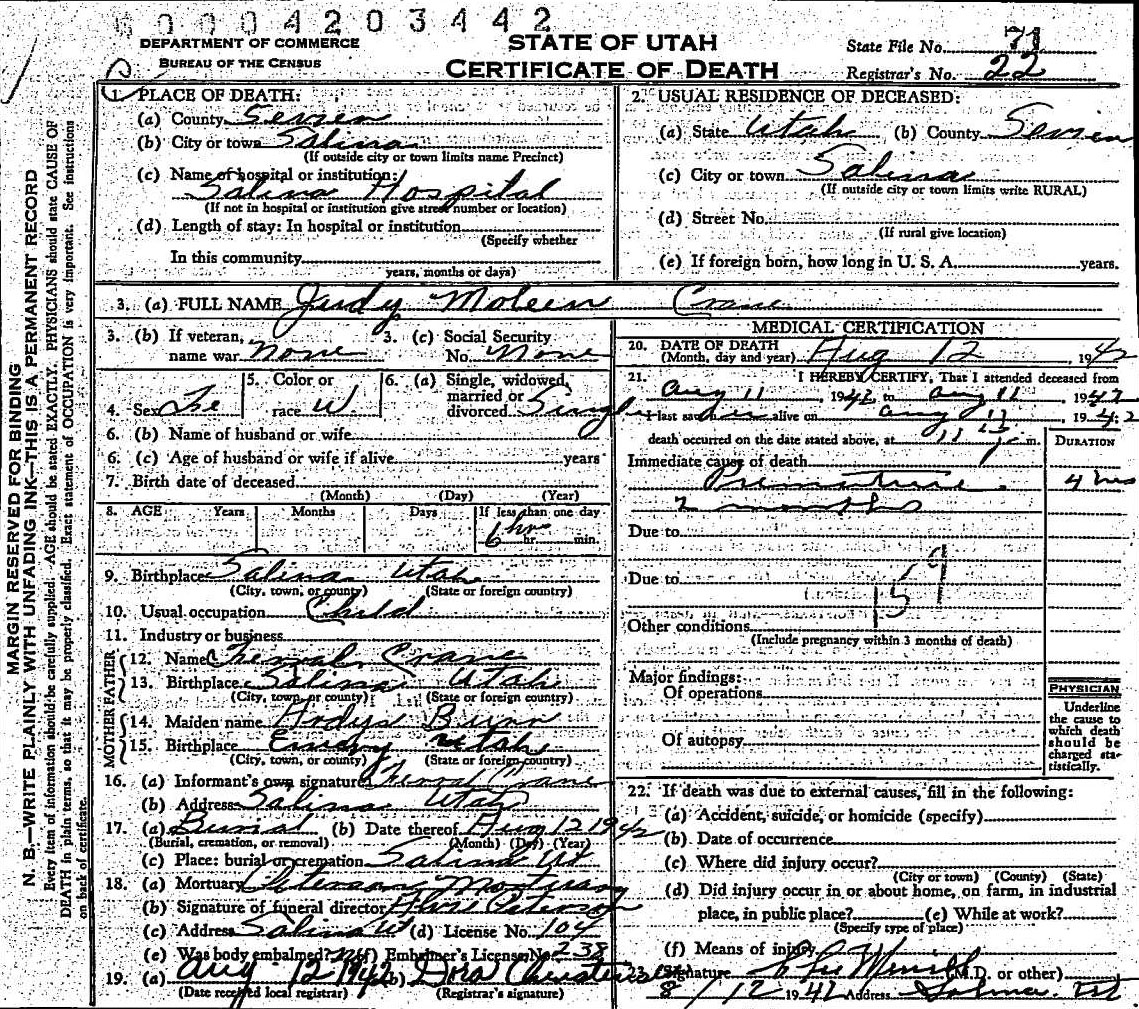 0004203442
DEPARTMENT OF COMMERCE
BUREAU OF THE CENSUS
STATE OF UTAH
CERTIFICATE OF DEATH
State File No. 71
Registrar's No. 22
MARGIN RESERVED FOR BINDING
N. B.—WRITE PLAINLY WITH UNFADING INK—THIS IS A PERMANENT RECORD
Every item of information should be carefully supplied. AGE should be stated EXACTLY. PHYSICIANS should state CAUSE OF
DEATH in plain terms, so that it may be properly classified. Exact statement of OCCUPATION is very important. See instructions
on back of certificate.
1. PLACE OF DEATH:
(a) County Sevier
(b) City or town Salina
(If outside city or town limits name Precinct)
(c) Name of hospital or institution:
Salina Hospital
(If not in hospital or institution give street number or location)
(d) Length of stay: In hospital or institution
(Specify whether
In this community
years, months or days)
2. USUAL RESIDENCE OF DECEASED:
(a) State Utah (b) County Sevier
(c) City or town Salina
(If outside city or town limits write RURAL)
(d) Street No.
(If rural give location)
(e) If foreign born, how long in U. S. A. years.
3. (a) FULL NAME Judy Moleen Crane
3. (b) If veteran,
name war None
3. (c) Social Security
No. None
4. Sex Fe
5. Color or
race W
6. (a) Single, widowed,
married or
divorced Single
6. (b) Name of husband or wife
6. (c) Age of husband or wife if alive years
7. Birth date of deceased
(Month) (Day) (Year)
8. AGE Years Months Days If less than one day
6 hrs hr. min.
9. Birthplace Salina Utah
(City, town, or county) (State or foreign country)
10. Usual occupation Child
11. Industry or business
FATHER
12. Name Crane
13. Birthplace Salina Utah
(City, town, or county) (State or foreign country)
MOTHER
14. Maiden name Bunn
15. Birthplace Emery Utah
(City, town, or county) (State or foreign country)
16. (a) Informant's own signature Crane
(b) Address Salina Utah
17. (a) Burial (b) Date thereof Aug 12 1942
(Burial, cremation, or removal) (Month) (Day) (Year)
(c) Place: burial or cremation Salina Ut
18. (a) Mortuary Peterson Mortuary
(b) Signature of funeral director Peterson
(c) Address Salina Ut (d) License No. 104
(e) Was body embalmed? (f) Embalmer's License No. 238
19. (a) Aug 12 1942 (b) Dora
(Date received local registrar) (Registrar's signature)
MEDICAL CERTIFICATION
20. DATE OF DEATH
(Month, day and year) Aug 12 1942
21. I HEREBY CERTIFY, That I attended deceased from
Aug 11, 1942, to Aug 11, 1942
I last saw alive on Aug 11 1942
death occurred on the date stated above, at 11 m.
DURATION
Immediate cause of death
Premature 4 hrs
2 months
Due to
Due to
159
Other conditions
(Include pregnancy within 3 months of death)
Major findings:
Of operations
Of autopsy
PHYSICIAN
Underline
the cause to
which death
should be
charged sta-
tistically.
22. If death was due to external causes, fill in the following:
(a) Accident, suicide, or homicide (specify)
(b) Date of occurrence
(c) Where did injury occur?
(City or town) (County) (State)
(d) Did injury occur in or about home, on farm, in industrial
place, in public place? (e) While at work?
(Specify type of place)
(f) Means of injury
23. Signature (M.D. or other)
8/12 1942 Address Salina Ut